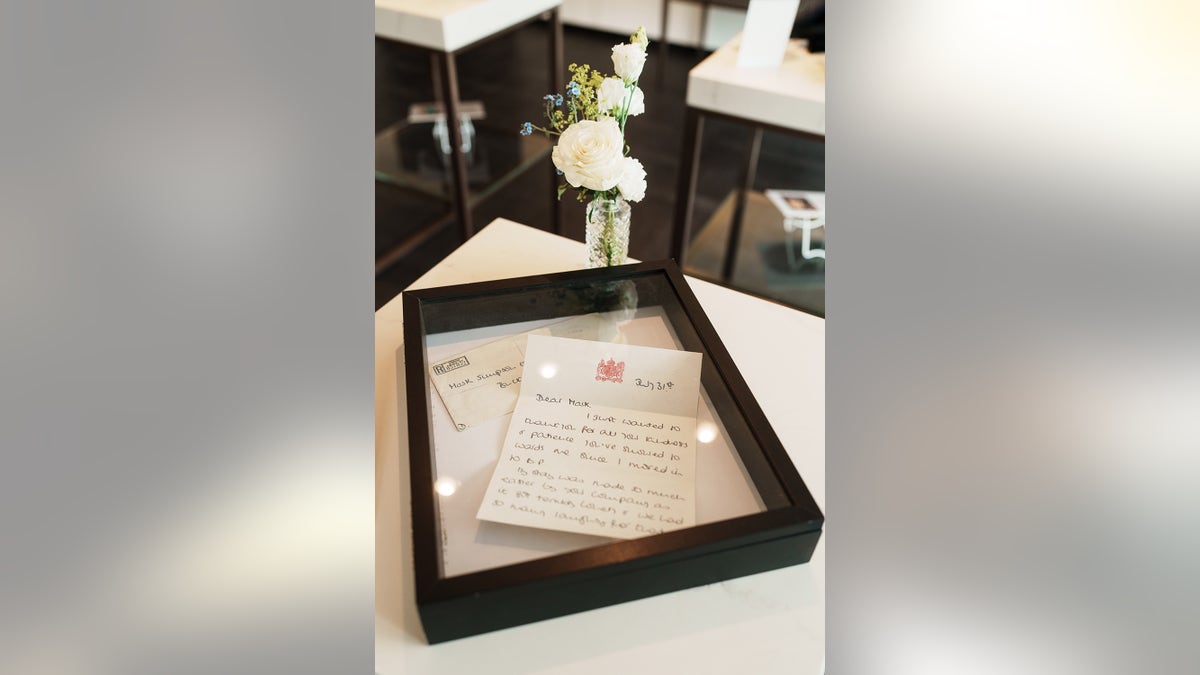 Mark Simpson
July 31st
Dear Mark
I just wanted to
thank you for all your kindness
& patience you've showed to
wards me since I moved in
to B.P
My stay was made so much
easier by your company as
it got terribly lonely & we had
so many laughs for that